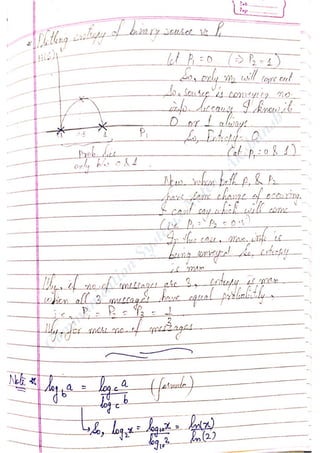 * Plotting entropy of binary source vs P₁
H(S)
let P₁ = 0 (⇒ P₂ = 1)
So, only m₂ will represent
So, source is conveying no
info. because I know it
0 or 1 always
0 ½ 1 P₁
So, Entropy = 0
(at P₁ = 0 & 1)
Prob. lies
only b/w 0 & 1
Now, when both P₁ & P₂
have same chance of occuring,
I cant say which will come
(i.e P₁ = P₂ = 0.5)
In this case, max. info is
being conveyed. So, entropy
is max
||ly, if no. of messages are 3, entropy is max.
when all 3 messages have equal probability.
i.e, P₁ = P₂ = P₃ = 1/3
||ly, for more no. of messages.
Note * log_b a = log_c a / log_c b (formula)
↳ So, log₂ x = log₁₀ x / log₁₀ 2 = ln(x) / ln(2)